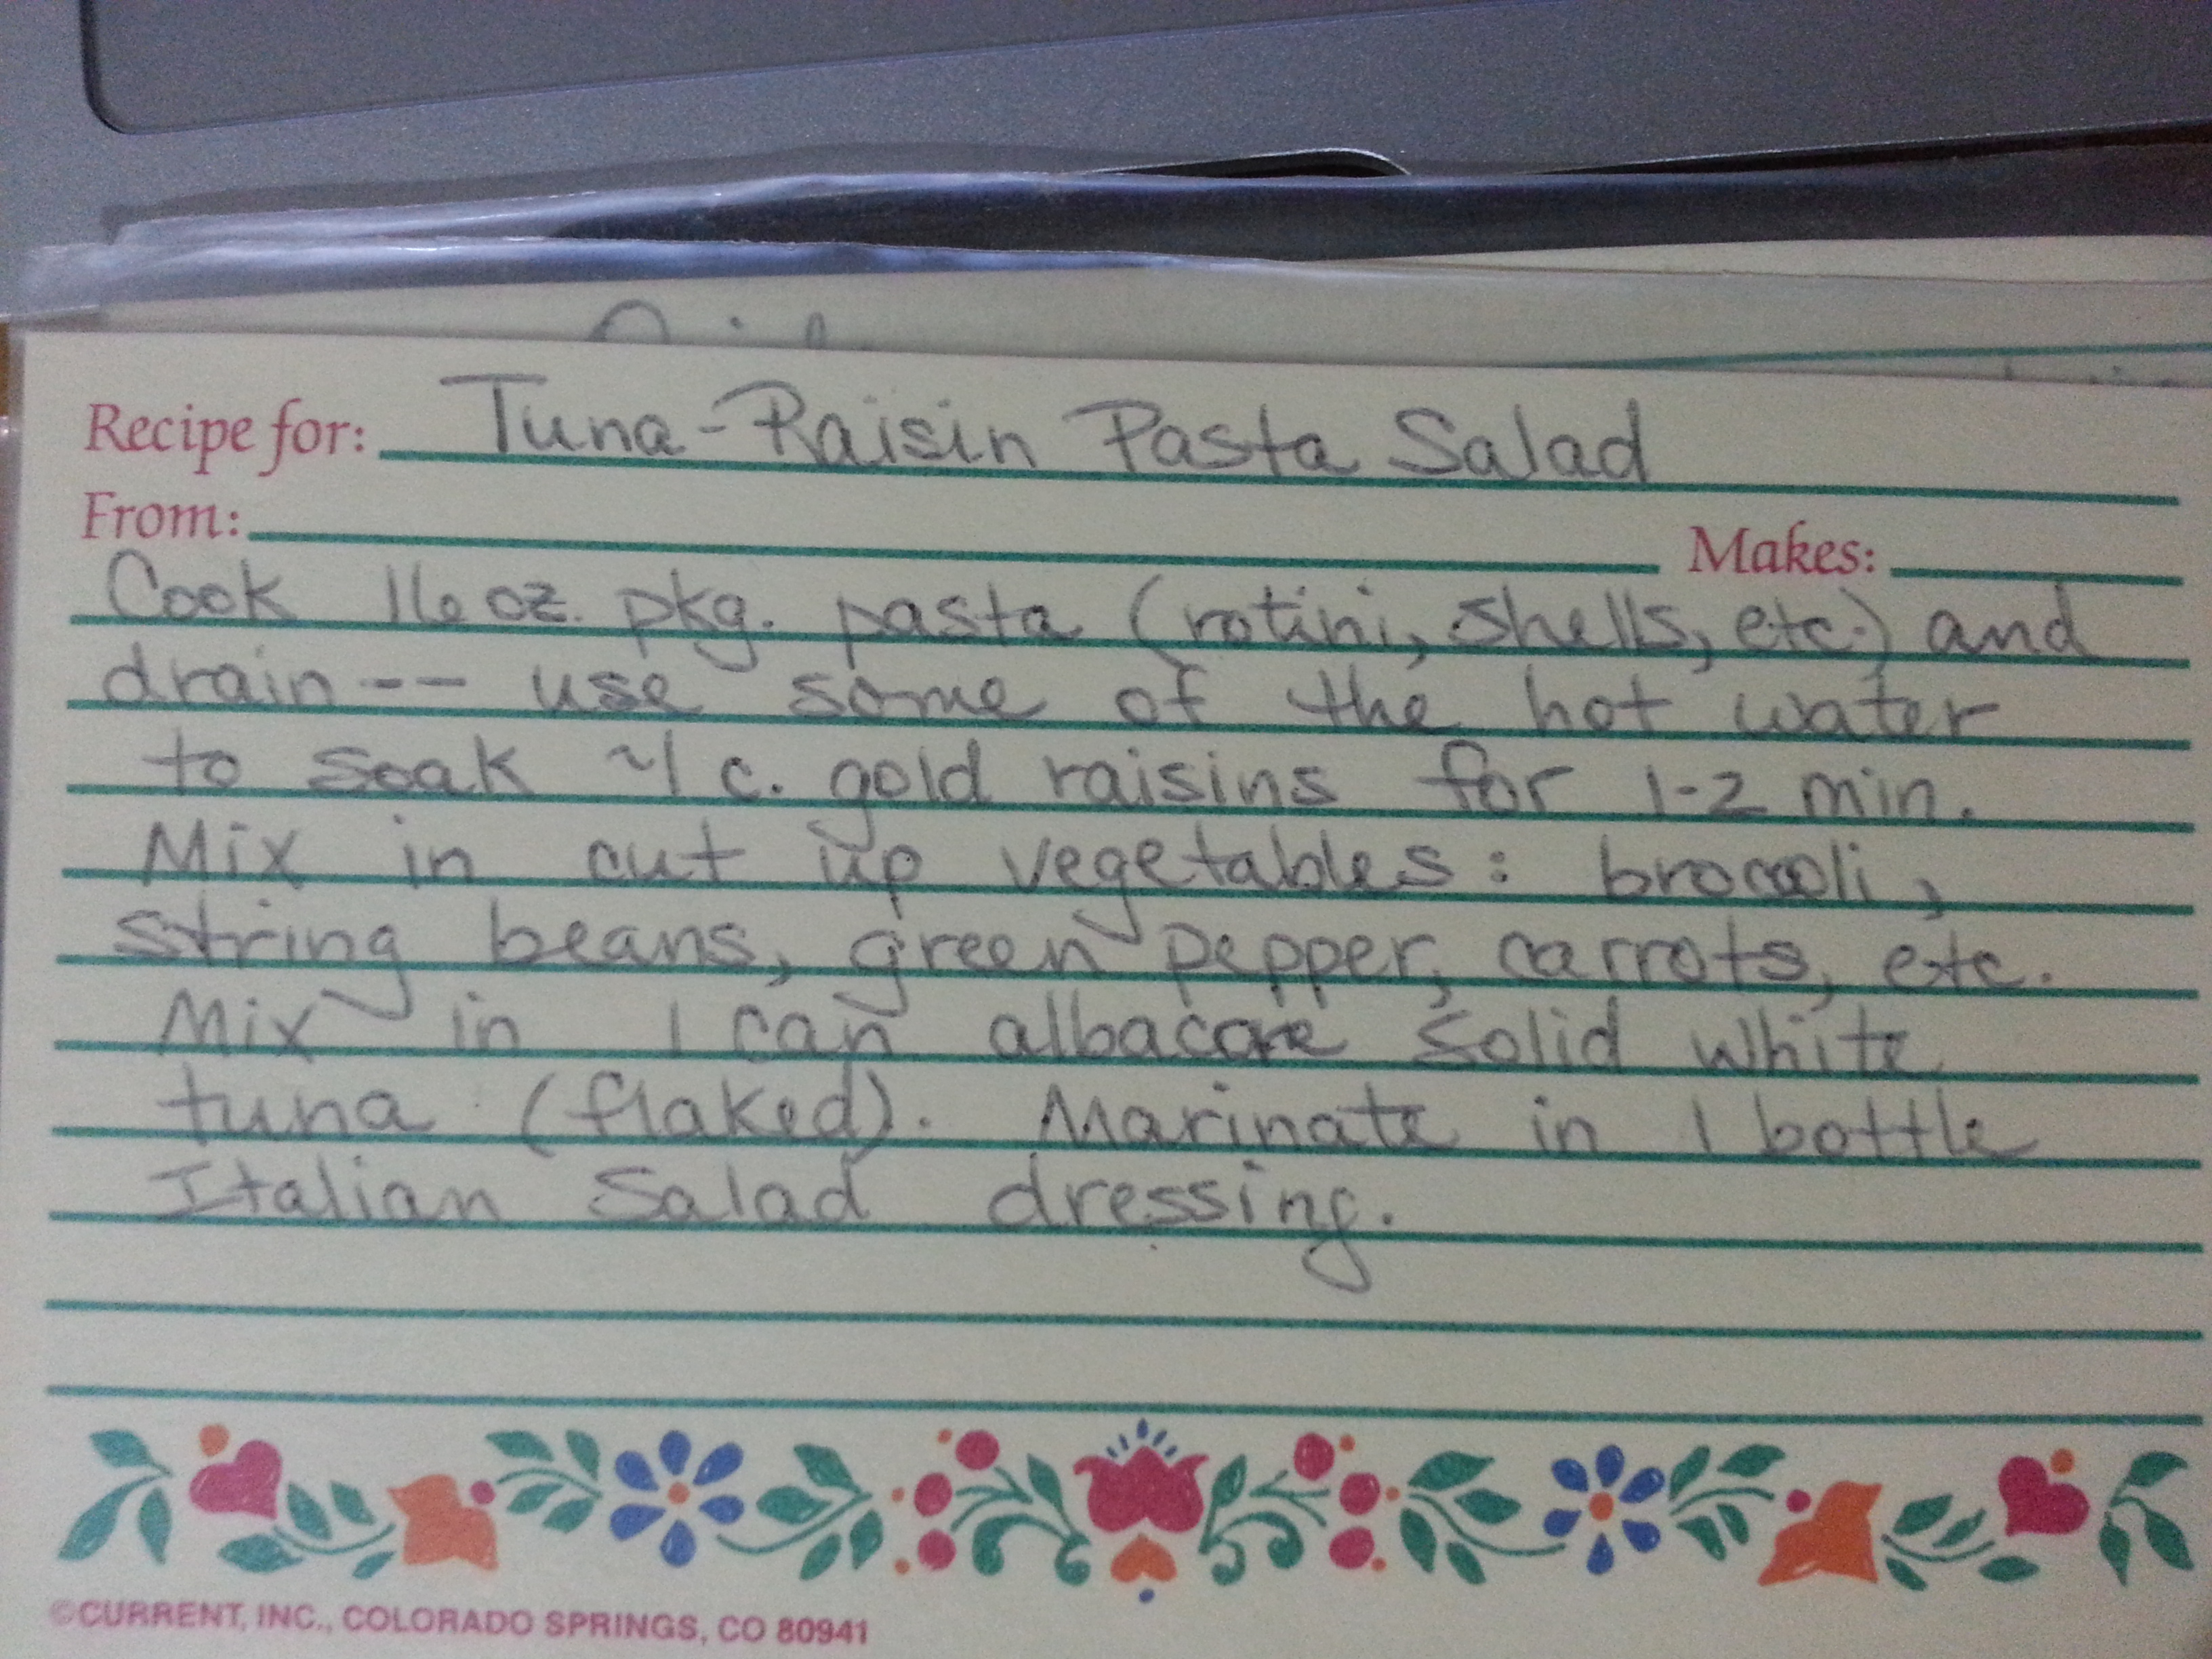 Recipe for: Tuna-Raisin Pasta Salad
From: Makes:
Cook 16 oz. pkg. pasta (rotini, shells, etc.) and
drain -- use some of the hot water
to soak ~1 c. gold raisins for 1-2 min.
Mix in cut up vegetables: broccoli,
string beans, green pepper, carrots, etc.
Mix in 1 can albacore solid white
tuna (flaked). Marinate in 1 bottle
Italian Salad dressing.
©CURRENT, INC., COLORADO SPRINGS, CO 80941